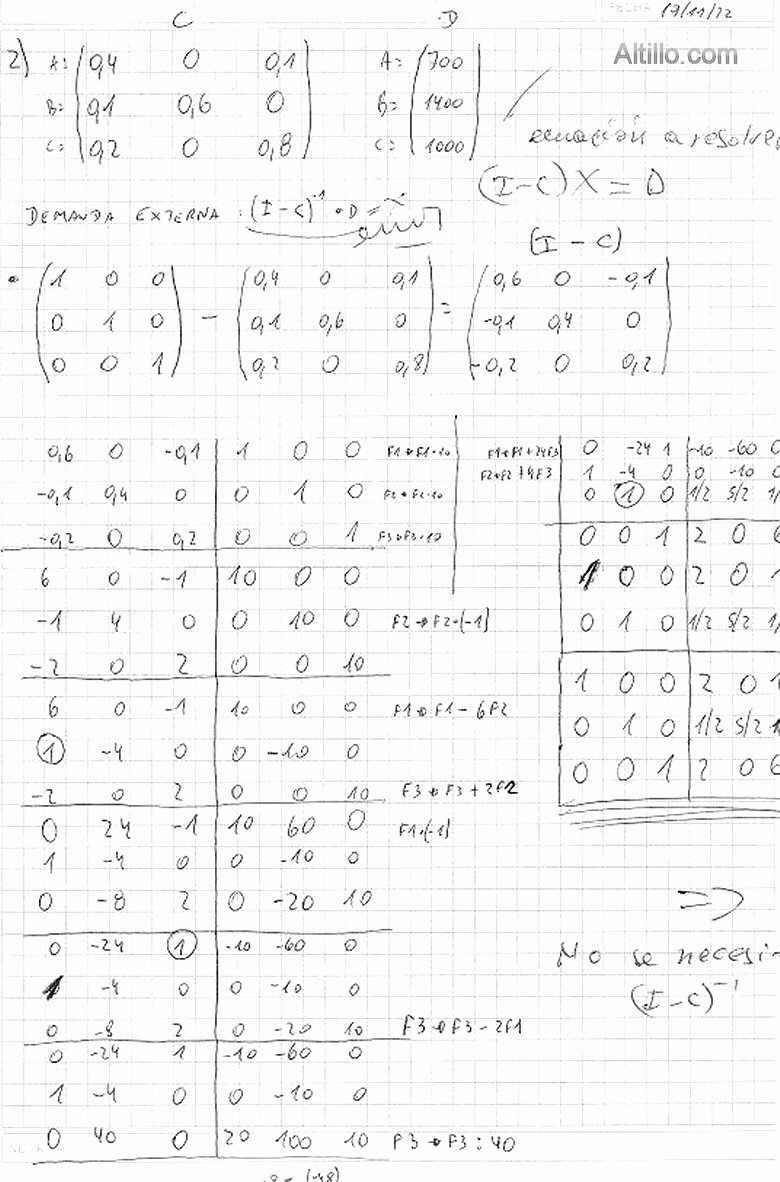 17/11/22
C D
Altillo.com
2) A: 0,4 0 0,1 A: 700
B: 0,1 0,6 0 B: 1400
C: 0,2 0 0,8 C: 1000
ecuación a resolver
(I-C)X = D
DEMANDA EXTERNA: (I-C)⁻¹ • D =
(I - C)
1 0 0 0,4 0 0,1 0,6 0 -0,1
0 1 0 - 0,1 0,6 0 = -0,1 0,4 0
0 0 1 0,2 0 0,8 -0,2 0 0,2
0,6 0 -0,1 1 0 0 F1→F1·10
-0,1 0,4 0 0 1 0 F2→F2·10
-0,2 0 0,2 0 0 1 F3→F3·10
6 0 -1 10 0 0
-1 4 0 0 10 0 F2→F2·(-1)
-2 0 2 0 0 10
6 0 -1 10 0 0 F1→F1-6F2
1 -4 0 0 -10 0
-2 0 2 0 0 10 F3→F3+2F2
0 24 -1 10 60 0 F1·(-1)
1 -4 0 0 -10 0
0 -8 2 0 -20 10
0 -24 1 -10 -60 0
1 -4 0 0 -10 0
0 -8 2 0 -20 10 F3→F3-2F1
0 -24 1 -10 -60 0
1 -4 0 0 -10 0
0 40 0 20 100 10 F3→F3:40
F1→F1+24F3 0 -24 1 -10 -60 0
F2→F2+4F3 1 -4 0 0 -10 0
0 1 0 1/2 5/2 1/
0 0 1 2 0 6
1 0 0 2 0 1
0 1 0 1/2 5/2 1/
1 0 0 2 0 1
0 1 0 1/2 5/2 1
0 0 1 2 0 6
=>
No se necesi-
(I-C)⁻¹